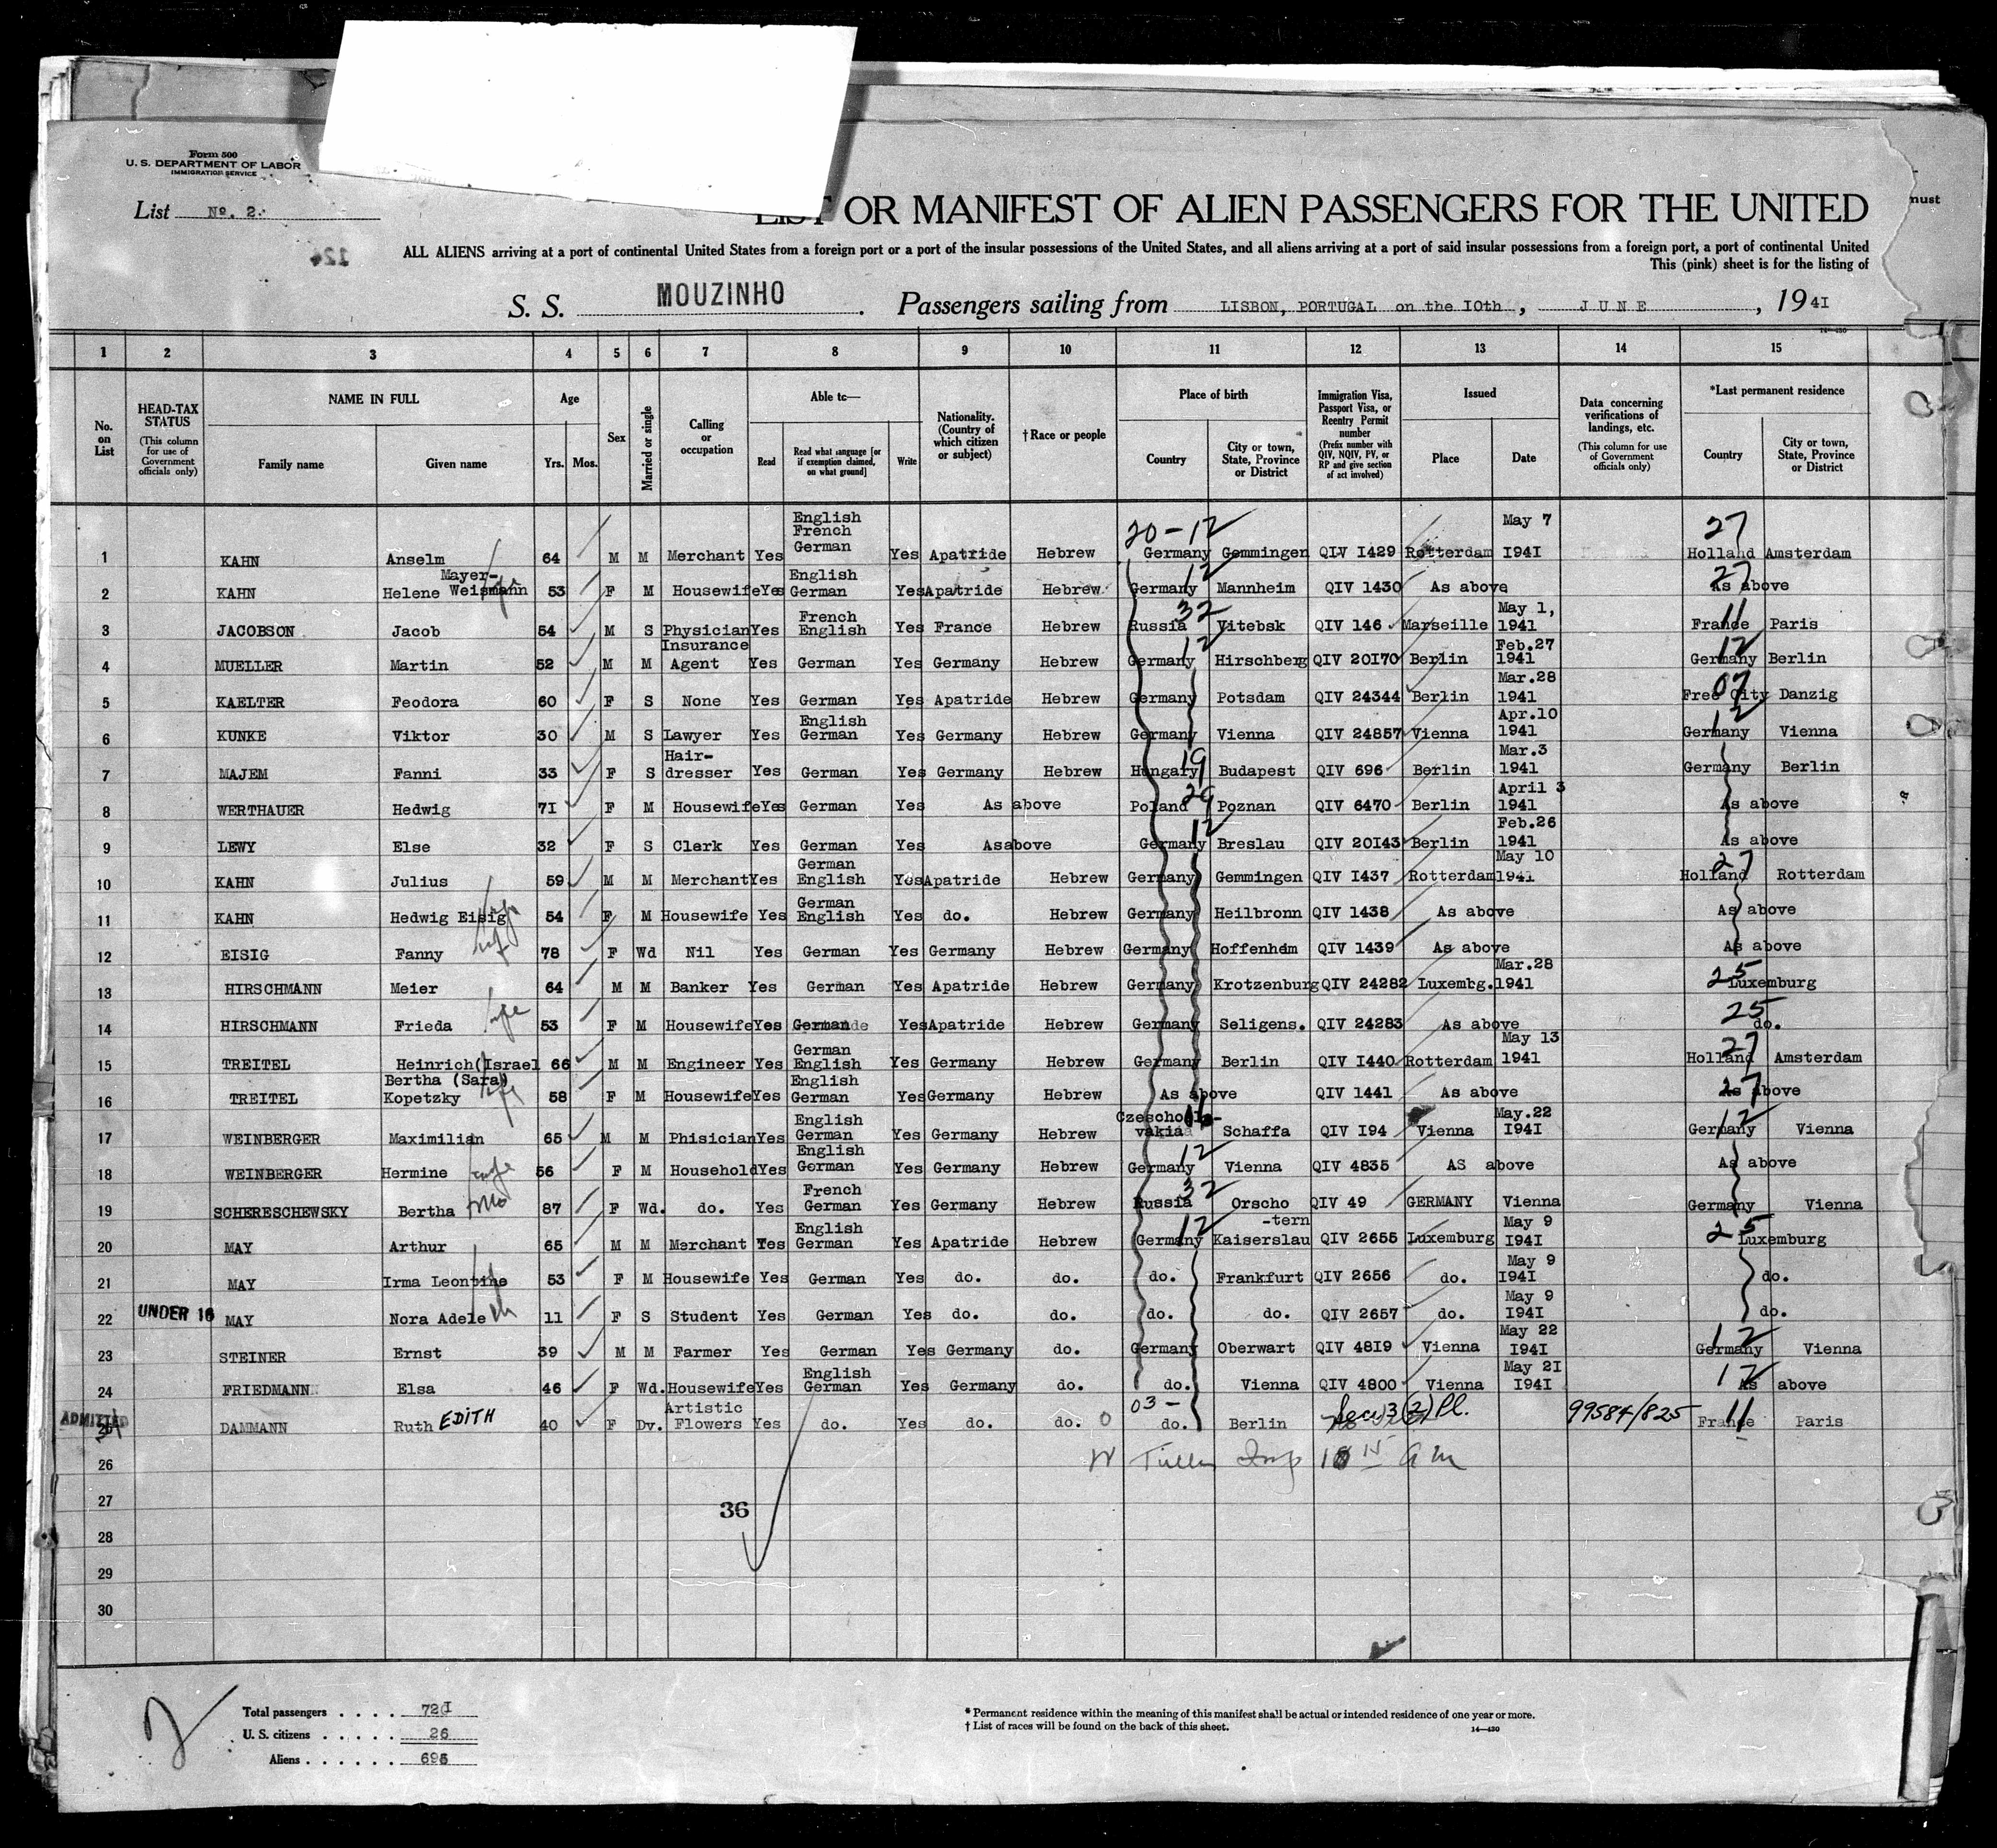 Form 500
U. S. DEPARTMENT OF LABOR
IMMIGRATION SERVICE
List No. 2.
LIST OR MANIFEST OF ALIEN PASSENGERS FOR THE UNITED
nust
124
ALL ALIENS arriving at a port of continental United States from a foreign port or a port of the insular possessions of the United States, and all aliens arriving at a port of said insular possessions from a foreign port, a port of continental United
This (pink) sheet is for the listing of
S. S. MOUZINHO. Passengers sailing from LISBON, PORTUGAL on the I0th, JUNE, 1941
14—430
1 2 3 4 5 6 7 8 9 10 11 12 13 14 15
No. on List
HEAD-TAX STATUS (This column for use of Government officials only)
NAME IN FULL Family name Given name
Age Yrs. Mos.
Sex
Married or single
Calling or occupation
Able to— Read Read what language [or if exemption claimed, on what ground] Write
Nationality. (Country of which citizen or subject)
†Race or people
Place of birth Country City or town, State, Province or District
Immigration Visa, Passport Visa, or Reentry Permit number (Prefix number with QIV, NQIV, PV, or RP and give section of act involved)
Issued Place Date
Data concerning verifications of landings, etc. (This column for use of Government officials only)
*Last permanent residence Country City or town, State, Province or District
1 KAHN Anselm 64 M M Merchant Yes English French German Yes Apatride Hebrew 20-12 Germany Gemmingen QIV I429 Rotterdam May 7 I94I 27 Holland Amsterdam
2 KAHN Helene Mayer-Weismann 53 F M Housewife Yes English German Yes Apatride Hebrew 12 Germany Mannheim QIV 1430 As above 27 As above
3 JACOBSON Jacob 54 M S Physician Yes French English Yes France Hebrew 32 Russia Vitebsk QIV 146 Marseille May 1, 1941 11 France Paris
4 MUELLER Martin 52 M M Insurance Agent Yes German Yes Germany Hebrew 12 Germany Hirschberg QIV 20I70 Berlin Feb.27 1941 12 Germany Berlin
5 KAELTER Feodora 60 F S None Yes German Yes Apatride Hebrew Germany Potsdam QIV 24344 Berlin Mar.28 1941 07 Free City Danzig
6 KUNKE Viktor 30 M S Lawyer Yes English German Yes Germany Hebrew Germany Vienna QIV 24857 Vienna Apr.10 1941 12 Germany Vienna
7 MAJEM Fanni 33 F S Hair-dresser Yes German Yes Germany Hebrew 19 Hungary Budapest QIV 696 Berlin Mar.3 1941 Germany Berlin
8 WERTHAUER Hedwig 7I F M Housewife Yes German Yes As above Poland 29 Poznan QIV 6470 Berlin April 3 1941 As above
9 LEWY Else 32 F S Clerk Yes German Yes As above 12 Germany Breslau QIV 20I43 Berlin Feb.26 1941 As above
10 KAHN Julius 59 M M Merchant Yes German English Yes Apatride Hebrew Germany Gemmingen QIV I437 Rotterdam May 10 1941 27 Holland Rotterdam
11 KAHN Hedwig Eisig 54 F M Housewife Yes German English Yes do. Hebrew Germany Heilbronn QIV 1438 As above As above
12 EISIG Fanny 78 F Wd Nil Yes German Yes Germany Hebrew Germany Hoffenheim QIV 1439 As above As above
13 HIRSCHMANN Meier 64 M M Banker Yes German Yes Apatride Hebrew Germany Krotzenburg QIV 24282 Luxembg. Mar.28 1941 25 Luxemburg
14 HIRSCHMANN Frieda wife 53 F M Housewife Yes German Yes Apatride Hebrew Germany Seligens. QIV 24283 As above 25 do.
15 TREITEL Heinrich(Israel 66 M M Engineer Yes German English Yes Germany Hebrew Germany Berlin QIV I440 Rotterdam May 13 1941 27 Holland Amsterdam
16 TREITEL Bertha (Sara) Kopetzky 58 F M Housewife Yes English German Yes Germany Hebrew As above QIV 1441 As above 27 As above
17 WEINBERGER Maximilian 65 M M Phisician Yes English German Yes Germany Hebrew Czeschoslo-vakia Schaffa QIV I94 Vienna May.22 I94I 12 Germany Vienna
18 WEINBERGER Hermine wife 56 F M Household Yes English German Yes Germany Hebrew 12 Germany Vienna QIV 4835 AS above As above
19 SCHERESCHEWSKY Bertha 87 F Wd. do. Yes French German Yes Germany Hebrew 32 Russia Orscho QIV 49 GERMANY Vienna Germany Vienna
20 MAY Arthur 65 M M Merchant Yes English German Yes Apatride Hebrew 12 Germany Kaiserslau-tern QIV 2655 Luxemburg May 9 I94I 25 Luxemburg
21 MAY Irma Leontine 53 F M Housewife Yes German Yes do. do. do. Frankfurt QIV 2656 do. May 9 I94I do.
22 UNDER 16 MAY Nora Adele 11 F S Student Yes German Yes do. do. do. do. QIV 2657 do. May 9 I94I do.
23 STEINER Ernst 39 M M Farmer Yes German Yes Germany do. Germany Oberwart QIV 48I9 Vienna May 22 I94I 12 Germany Vienna
24 FRIEDMANN Elsa 46 F Wd. Housewife Yes English German Yes Germany do. do. Vienna QIV 4800 Vienna May 2I I94I 12 As above
ADMITTED 25 DAMMANN Ruth EDITH 40 F Dv. Artistic Flowers Yes do. Yes do. do. 03- do. Berlin Sec. 3 (2) Pl. 99584/825 11 France Paris
26
27
36
28
29
30
2
Total passengers . . . . 72I
U. S. citizens . . . . . 26
Aliens . . . . . . 695
* Permanent residence within the meaning of this manifest shall be actual or intended residence of one year or more.
† List of races will be found on the back of this sheet.
14—430